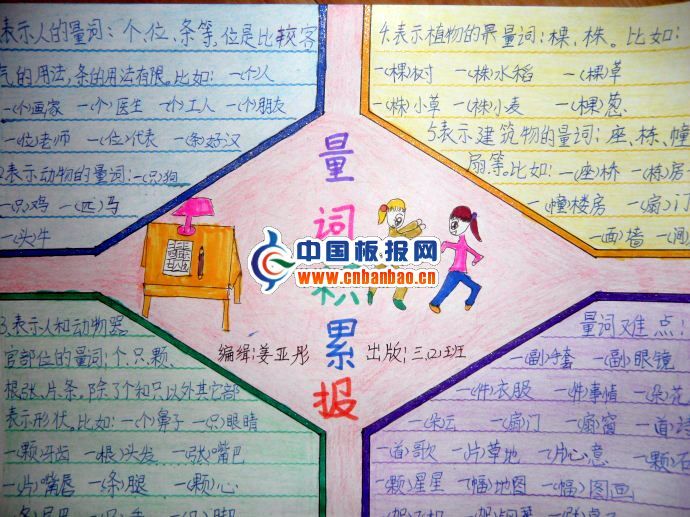 表示人的量词:个、位、条等,位是比较客
气的用法,条的用法有限。比如: 一(个)人
一(个)画家 一(个)医生 一(个)工人 一(个)朋友
一(位)老师 一(位)代表 一(条)好汉
2表示动物的量词:一(只)狗
(只)鸡 一(匹)马
一(头)牛
4.表示植物的量词:棵、株。比如:
一(棵)树 一(株)水稻 一(棵)草
一(株)小草 一(株)小麦 一(棵)葱
5表示建筑物的量词:座、栋、幢
扇等。比如: 一(座)桥 一(栋)房
一(幢)楼房 一(扇)门
一(面)墙 一(间)
量
词
积
累
报
中国板报网
www.cnbanbao.cn
编缉:姜亚彤 出版:三、(2)班
3.表示人和动物器
官部位的量词:个、只、颗、
根、张、片、条。除了个和只以外其它部
表示形状。比如:一(个)鼻子 一(只)眼睛
一(颗)牙齿 一(根)头发 一(张)嘴巴
一(片)嘴唇 一(条)腿 一(颗)心
量词难点:
一(副)手套 一(副)眼镜
一(件)衣服 一(件)事情 一(朵)花
一(朵)云 一(扇)门 一(扇)窗 一(道)
一(首)歌 一(片)草地 一(片)心意 一(颗)石
一(颗)星星 一(幅)地图 一(幅)图画